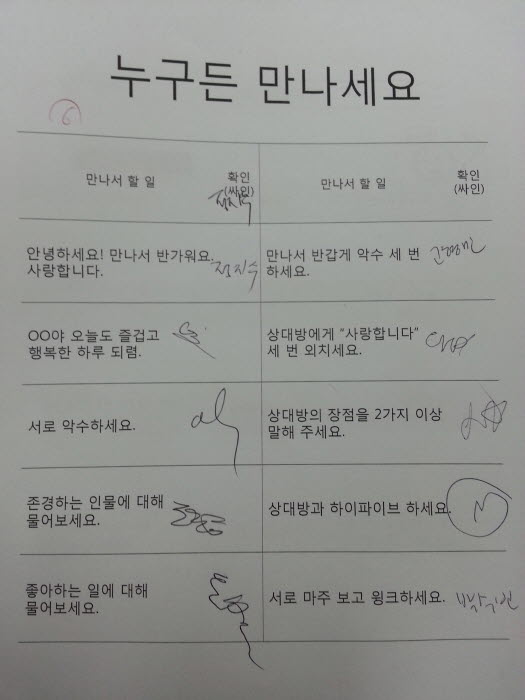 누구든 만나세요
6
만나서 할 일
확인
(싸인)
만나서 할 일
확인
(싸인)
안녕하세요! 만나서 반가워요.
사랑합니다.
정지수
만나서 반갑게 악수 세 번
하세요.
OO야 오늘도 즐겁고
행복한 하루 되렴.
상대방에게 “사랑합니다”
세 번 외치세요.
서로 악수하세요.
상대방의 장점을 2가지 이상
말해 주세요.
존경하는 인물에 대해
물어보세요.
상대방과 하이파이브 하세요.
좋아하는 일에 대해
물어보세요.
서로 마주 보고 윙크하세요.